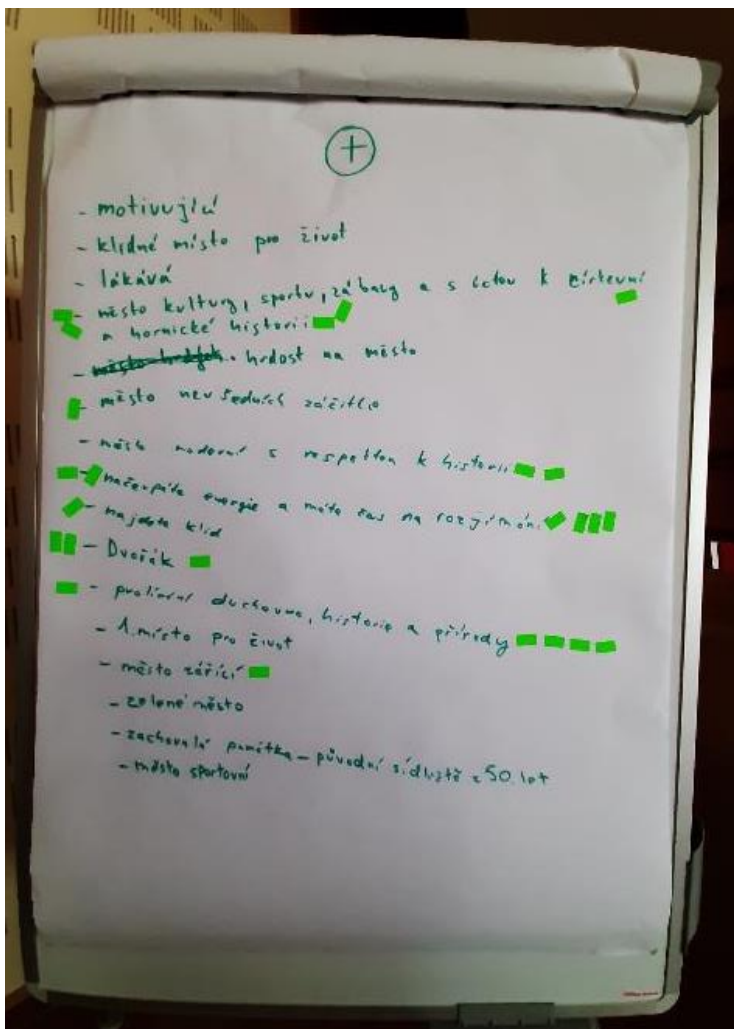 +
- motivující
- klidné místo pro život
- lákává
- město kultury, sportu, zábavy a s úctou k církevní
a hornické historii
- hrdost na město
- město nevšedních zážitků
- město moderní s respektem k historii
- načerpáte energie a máte čas na rozjímání
- najdete klid
- Dvořák
- prolínání duchovna, historie a přírody
- 1. místo pro život
- město zářící
- zelené město
- zachovalá památka - původní sídliště z 50. let
- město sportovní